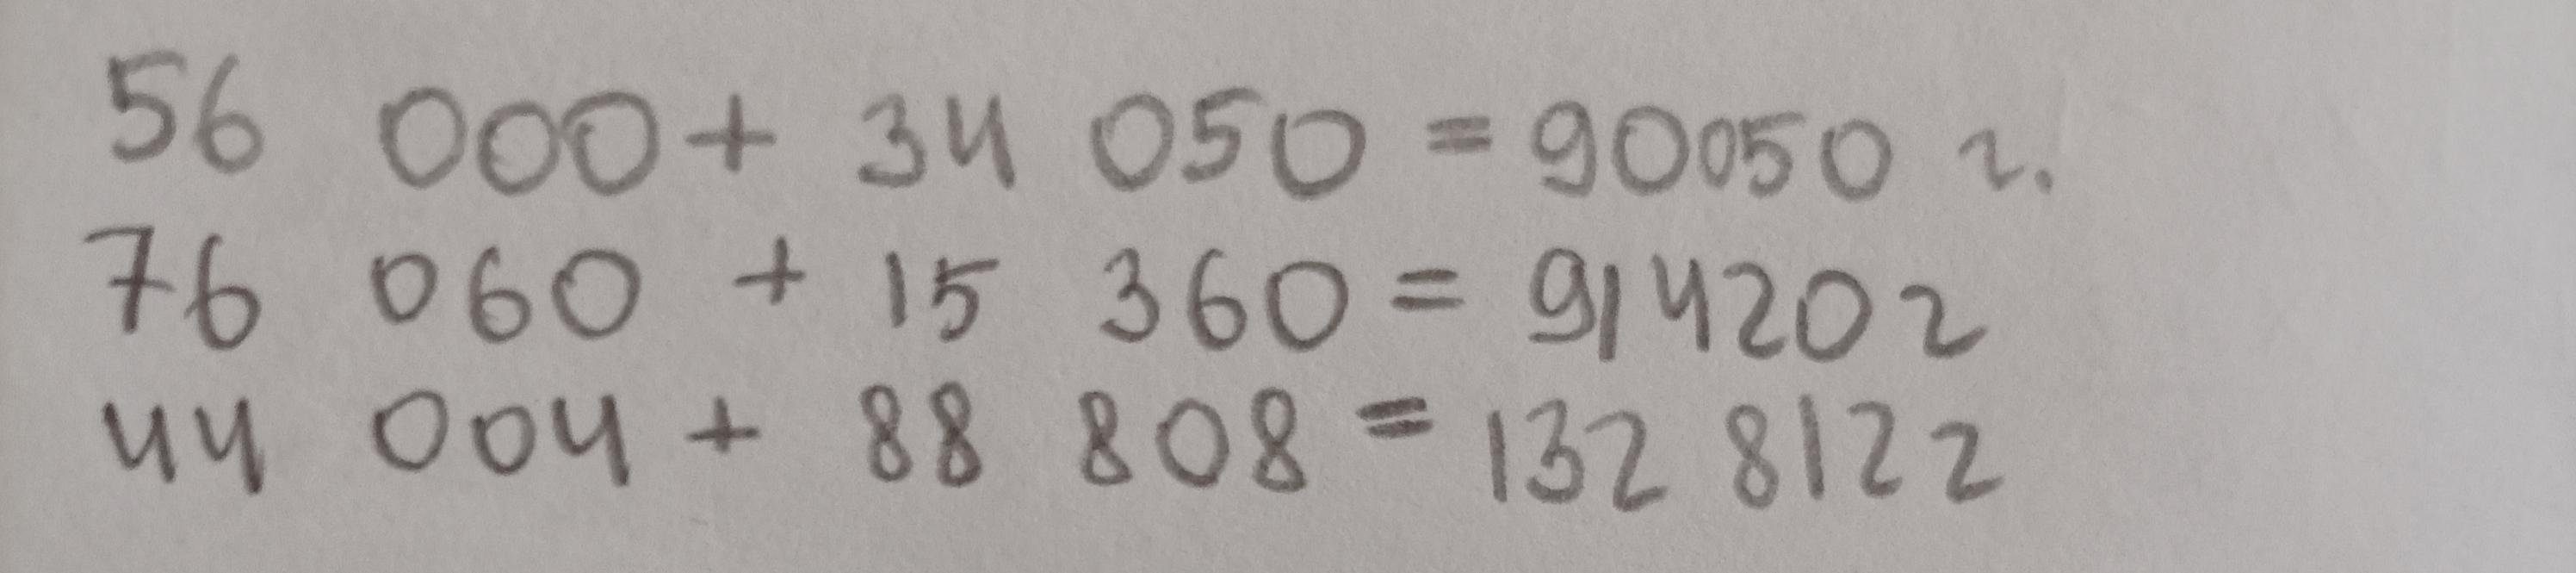 56 000 + 34 050 = 90050 г.
76 060 + 15 360 = 91420 г
44 004 + 88 808 = 132 812 г